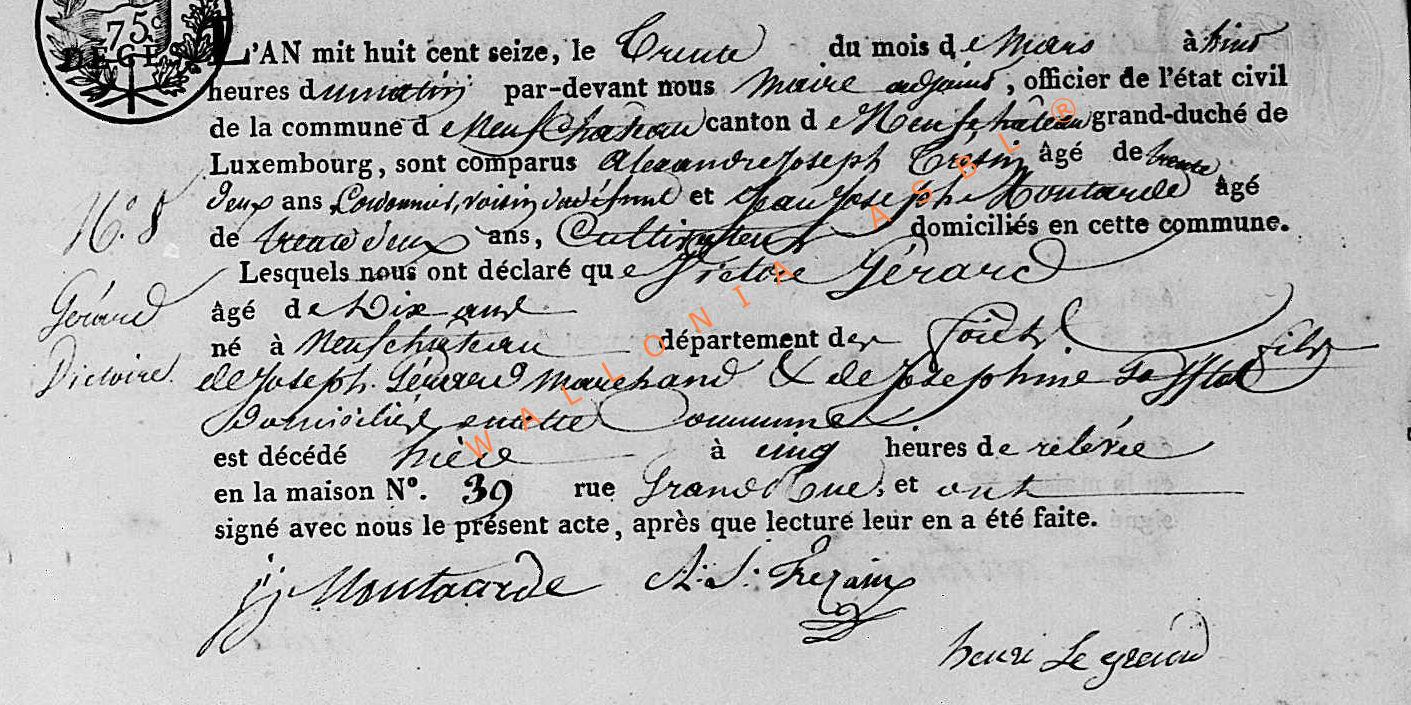 75c
DÉGES
L'AN mil huit cent seize, le Trente du mois de Mars à
heures du matin par-devant nous Maire adjoint, officier de l'état civil
de la commune de Neufchateau canton de Neufchâteau grand-duché de
Luxembourg, sont comparus Alexandre Joseph âgé de trente
N.° 8
deux ans Cordonnier, voisin du défunt et Jean Joseph Moutarde âgé
de trente deux ans, Cultivateur domiciliés en cette commune.
Lesquels nous ont déclaré que Victoire Gérard
Gérard
Victoire.
âgé de Dix ans
né à Neufchateau département des Forêts fille
de Joseph Gérard Marchand & de Josephine
Domiciliés en cette Commune
est décédé hière à cinq heures de relevée
en la maison N°. 39 rue Grande Rue, et ont
signé avec nous le présent acte, après que lecture leur en a été faite.
j j Moutarde A: J: Trezain
henri Le grand
WALLONIA ASBL ®